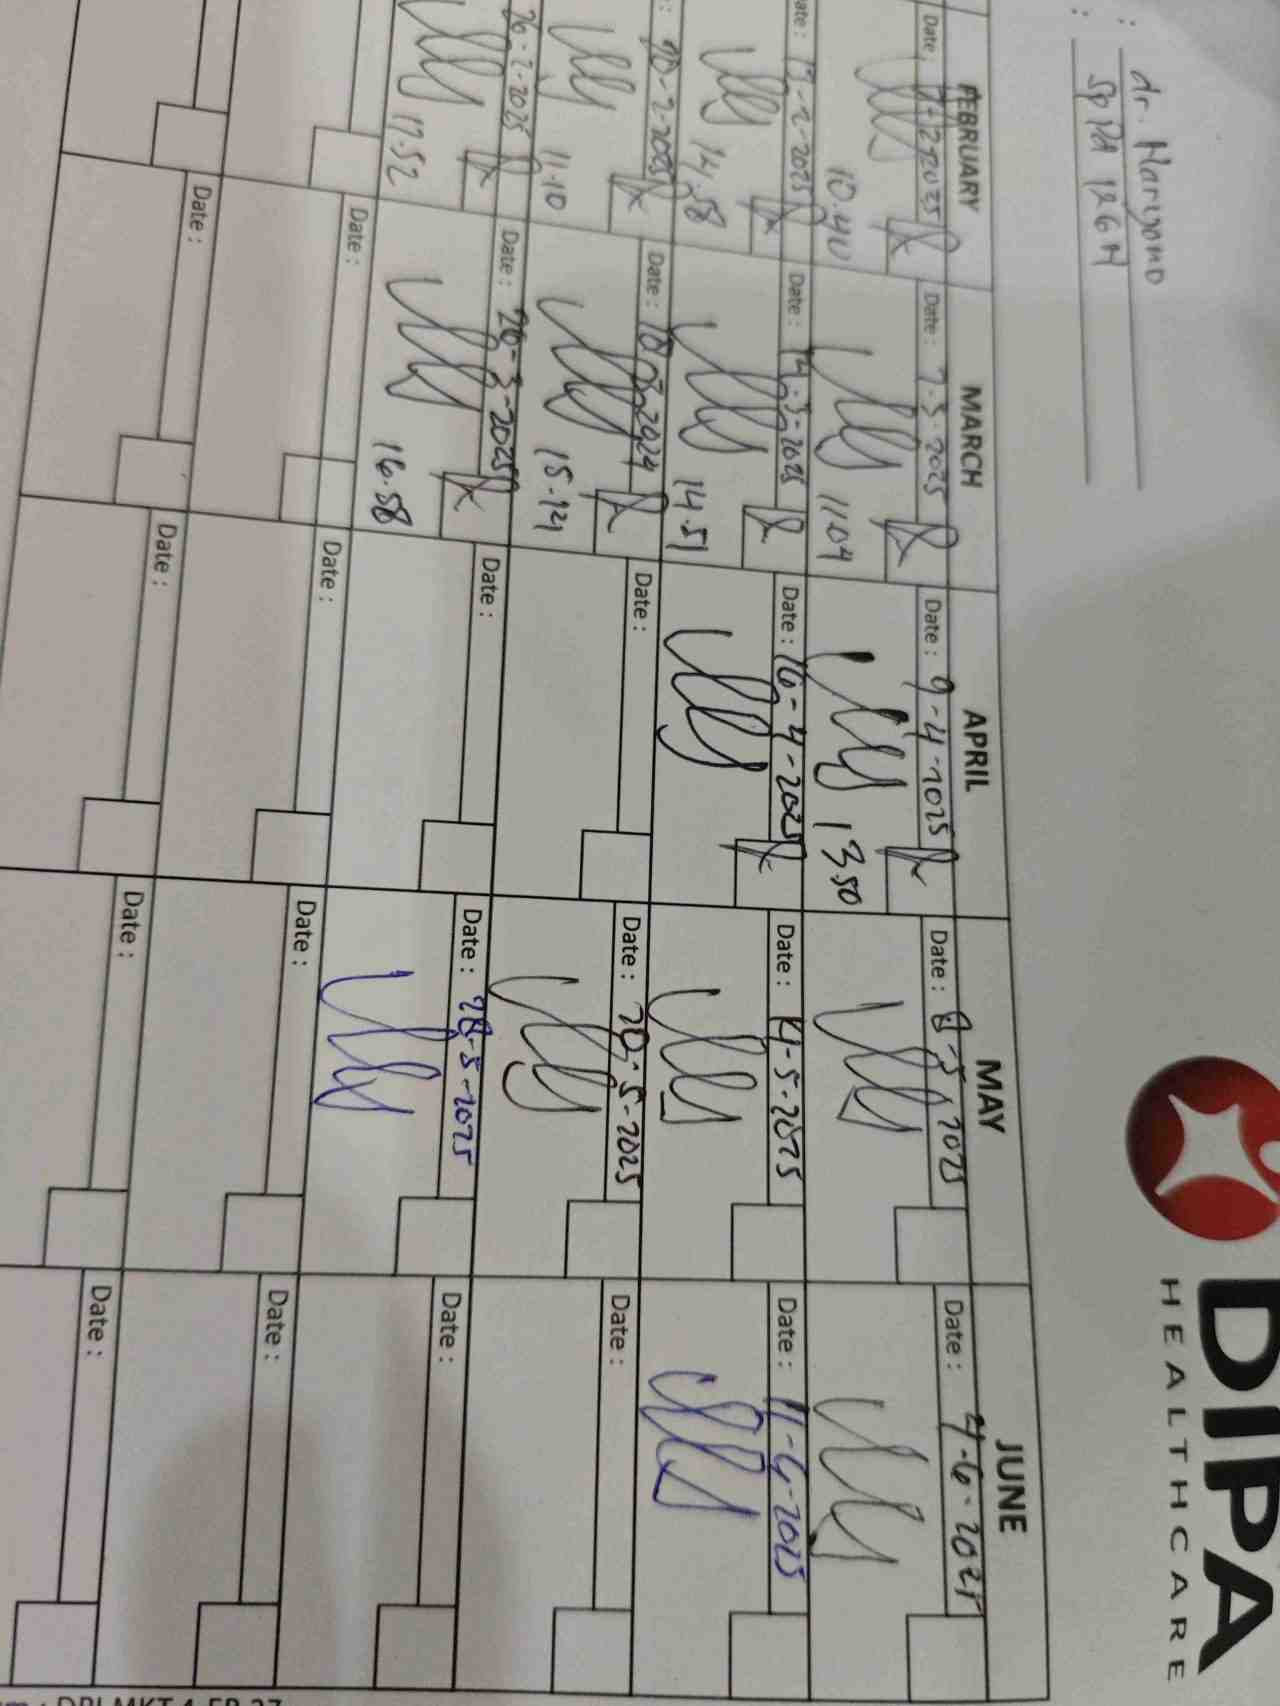 DIPA
HEALTHCARE
: dr. Hariyono
: Sp Pd 126 H
FEBRUARY MARCH APRIL MAY JUNE
Date: 7-2-2025 Date: 7-3-2025 Date: 9-4-2025 Date: 8-5-2025 Date: 4-6-2025
10.40 11.04 13.50
Date: 13-2-2025 Date: 14-3-2025 Date: 16-4-2025 Date: 14-5-2025 Date: 11-6-2025
14.58 14.51
Date: 20-2-2025 Date: 18-3-2024 Date: Date: 20-5-2025 Date:
11.10 15.14
26-2-2025 Date: 26-3-2025 Date: Date: 28-5-2025 Date:
17.52 16.58
Date: Date: Date: Date:
Date: Date: Date: Date:
: DPI-MKT-4-FR-27